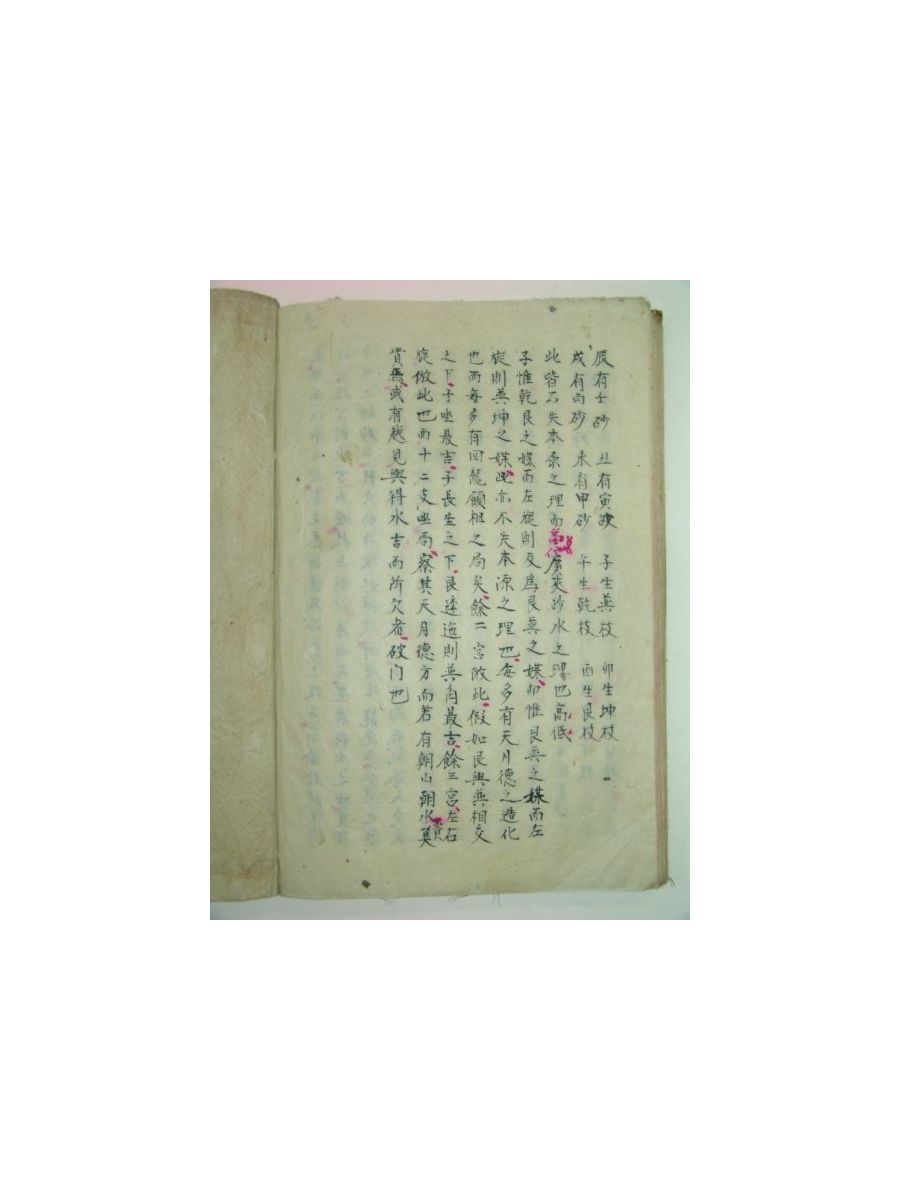 辰有壬砂 丑有寅砂 子生巽枝 卯生坤枝
戌有丙砂 未有甲砂 午生乾枝 酉生艮枝
此皆不失本原之理而廣求砂水之理也高低
子惟乾艮之媒而左旋則反爲艮巽之媒卯惟艮巽之媒而左
旋則巽坤之媒此亦不失本源之理也每多有天月德之造化
也而每多有回龍顧祖之局矣餘二宮倣此假如艮與巽相交
之下子坐最吉子長生之下艮逶迤則巽角最吉餘三宮左右
旋倣此也而十二支坐局察其天月德方而若有朝山朝水莫
貴焉或有越見與得水吉而所欠者破门也